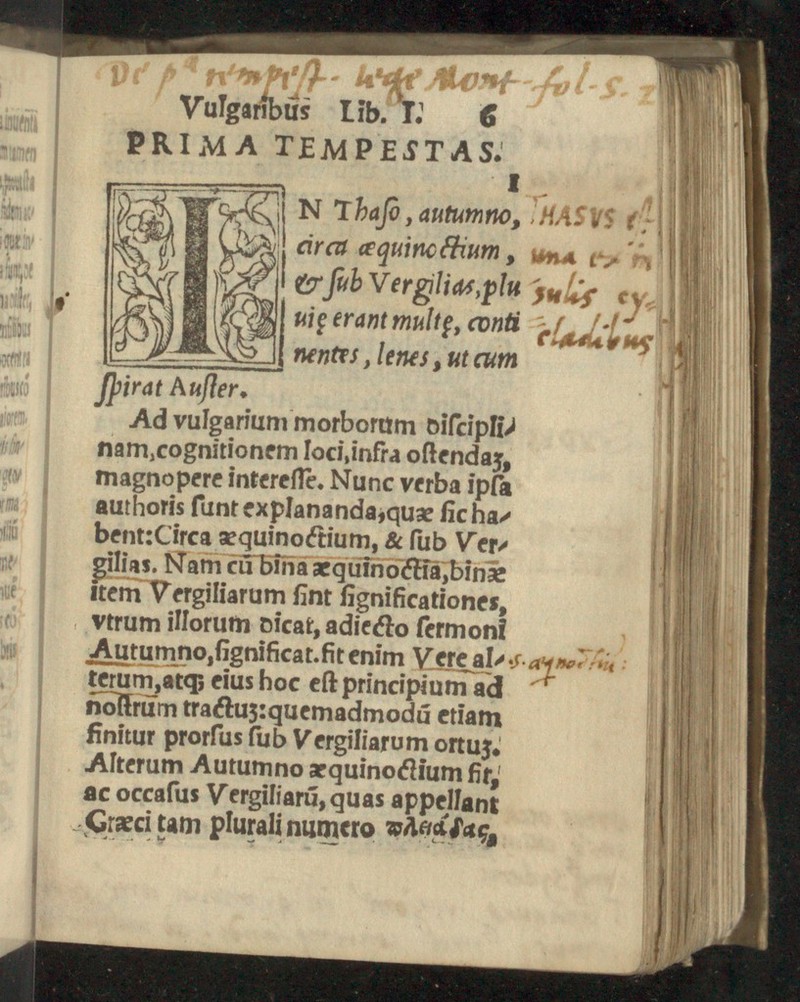 De pª tempest- lege Mont-fol-5. 2
Vulgaribus Lib. I. 6
PRIMA TEMPESTAS.
I
IN Thaſo, autumno,
circa æquinoctium,
& ſub Vergilias, plu
uię erant multę, conti
nentes, lenes, ut cum
ſpirat Auſter.
THASVS eſt
una ex in
sulis cy-
cladibus
Ad vulgarium morborum diſcipli-
nam, cognitionem loci, infra oſtendaʒ,
magnopere intereſſe. Nunc verba ipſa
authoris ſunt explananda, quæ ſic ha-
bent: Circa æquinoctium, & ſub Ver-
gilias. Nam cū bina æquinoctia, binæ
item Vergiliarum ſint ſignificationes,
vtrum illorum dicat, adiecto ſermoni
Autumno, ſignificat. fit enim Vere al-
s. æqnoctiū :
terum, atqʒ eius hoc eſt principium ad
noſtrum tractuʒ: quemadmodū etiam
finitur prorſus ſub Vergiliarum ortuʒ.
Alterum Autumno æquinoctium fit,
ac occaſus Vergiliarū, quas appellant
Græci tam plurali numero πληάδας,